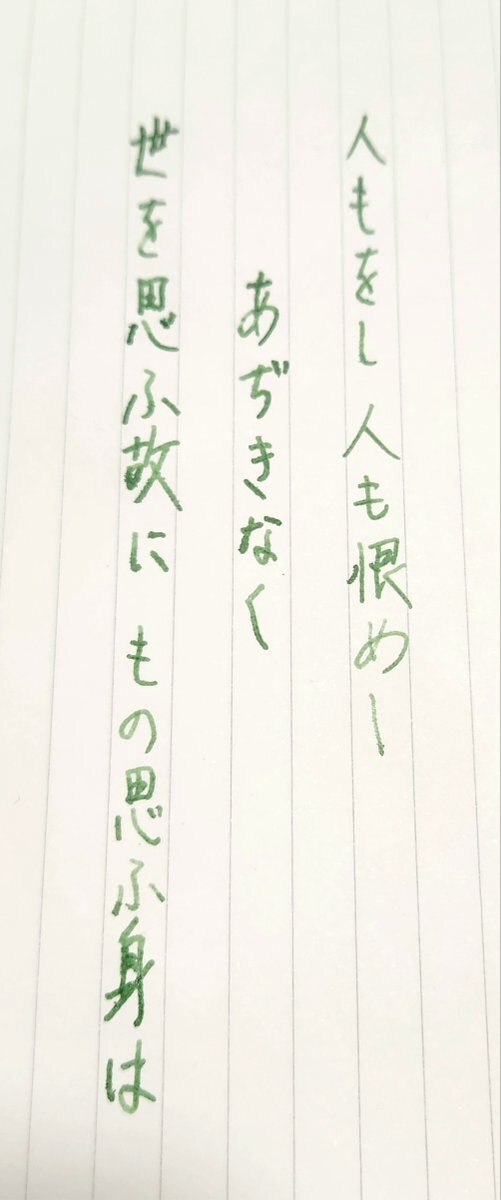 人もをし 人も恨めし
あぢきなく
世を思ふ故に もの思ふ身は